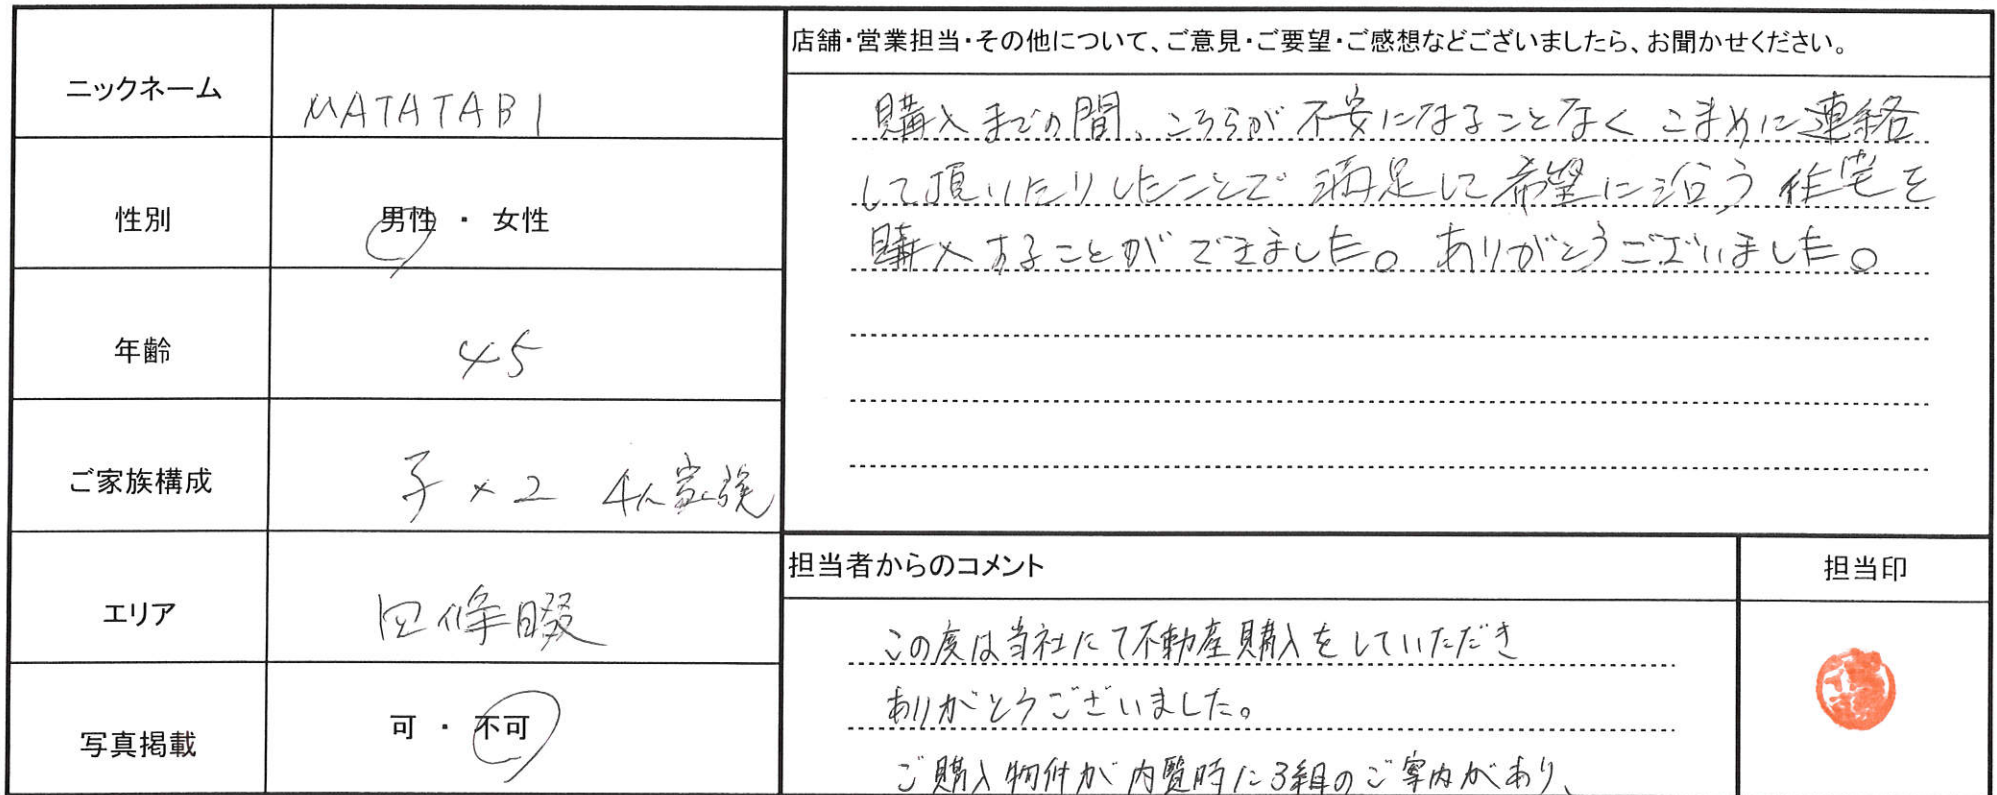 ニックネーム
MATATABI
性別
男性 ・ 女性
年齢
45
ご家族構成
子×2 4人家族
エリア
四條畷
写真掲載
可 ・ 不可
店舗・営業担当・その他について、ご意見・ご要望・ご感想などございましたら、お聞かせください。
購入までの間、こちらが不安になることなくこまめに連絡
して頂いたりしたことで満足して希望に沿う住宅を
購入することができました。ありがとうございました。
担当者からのコメント
この度は当社にて不動産購入をしていただき
ありがとうございました。
ご購入物件が内覧時に3組のご案内があり、
担当印